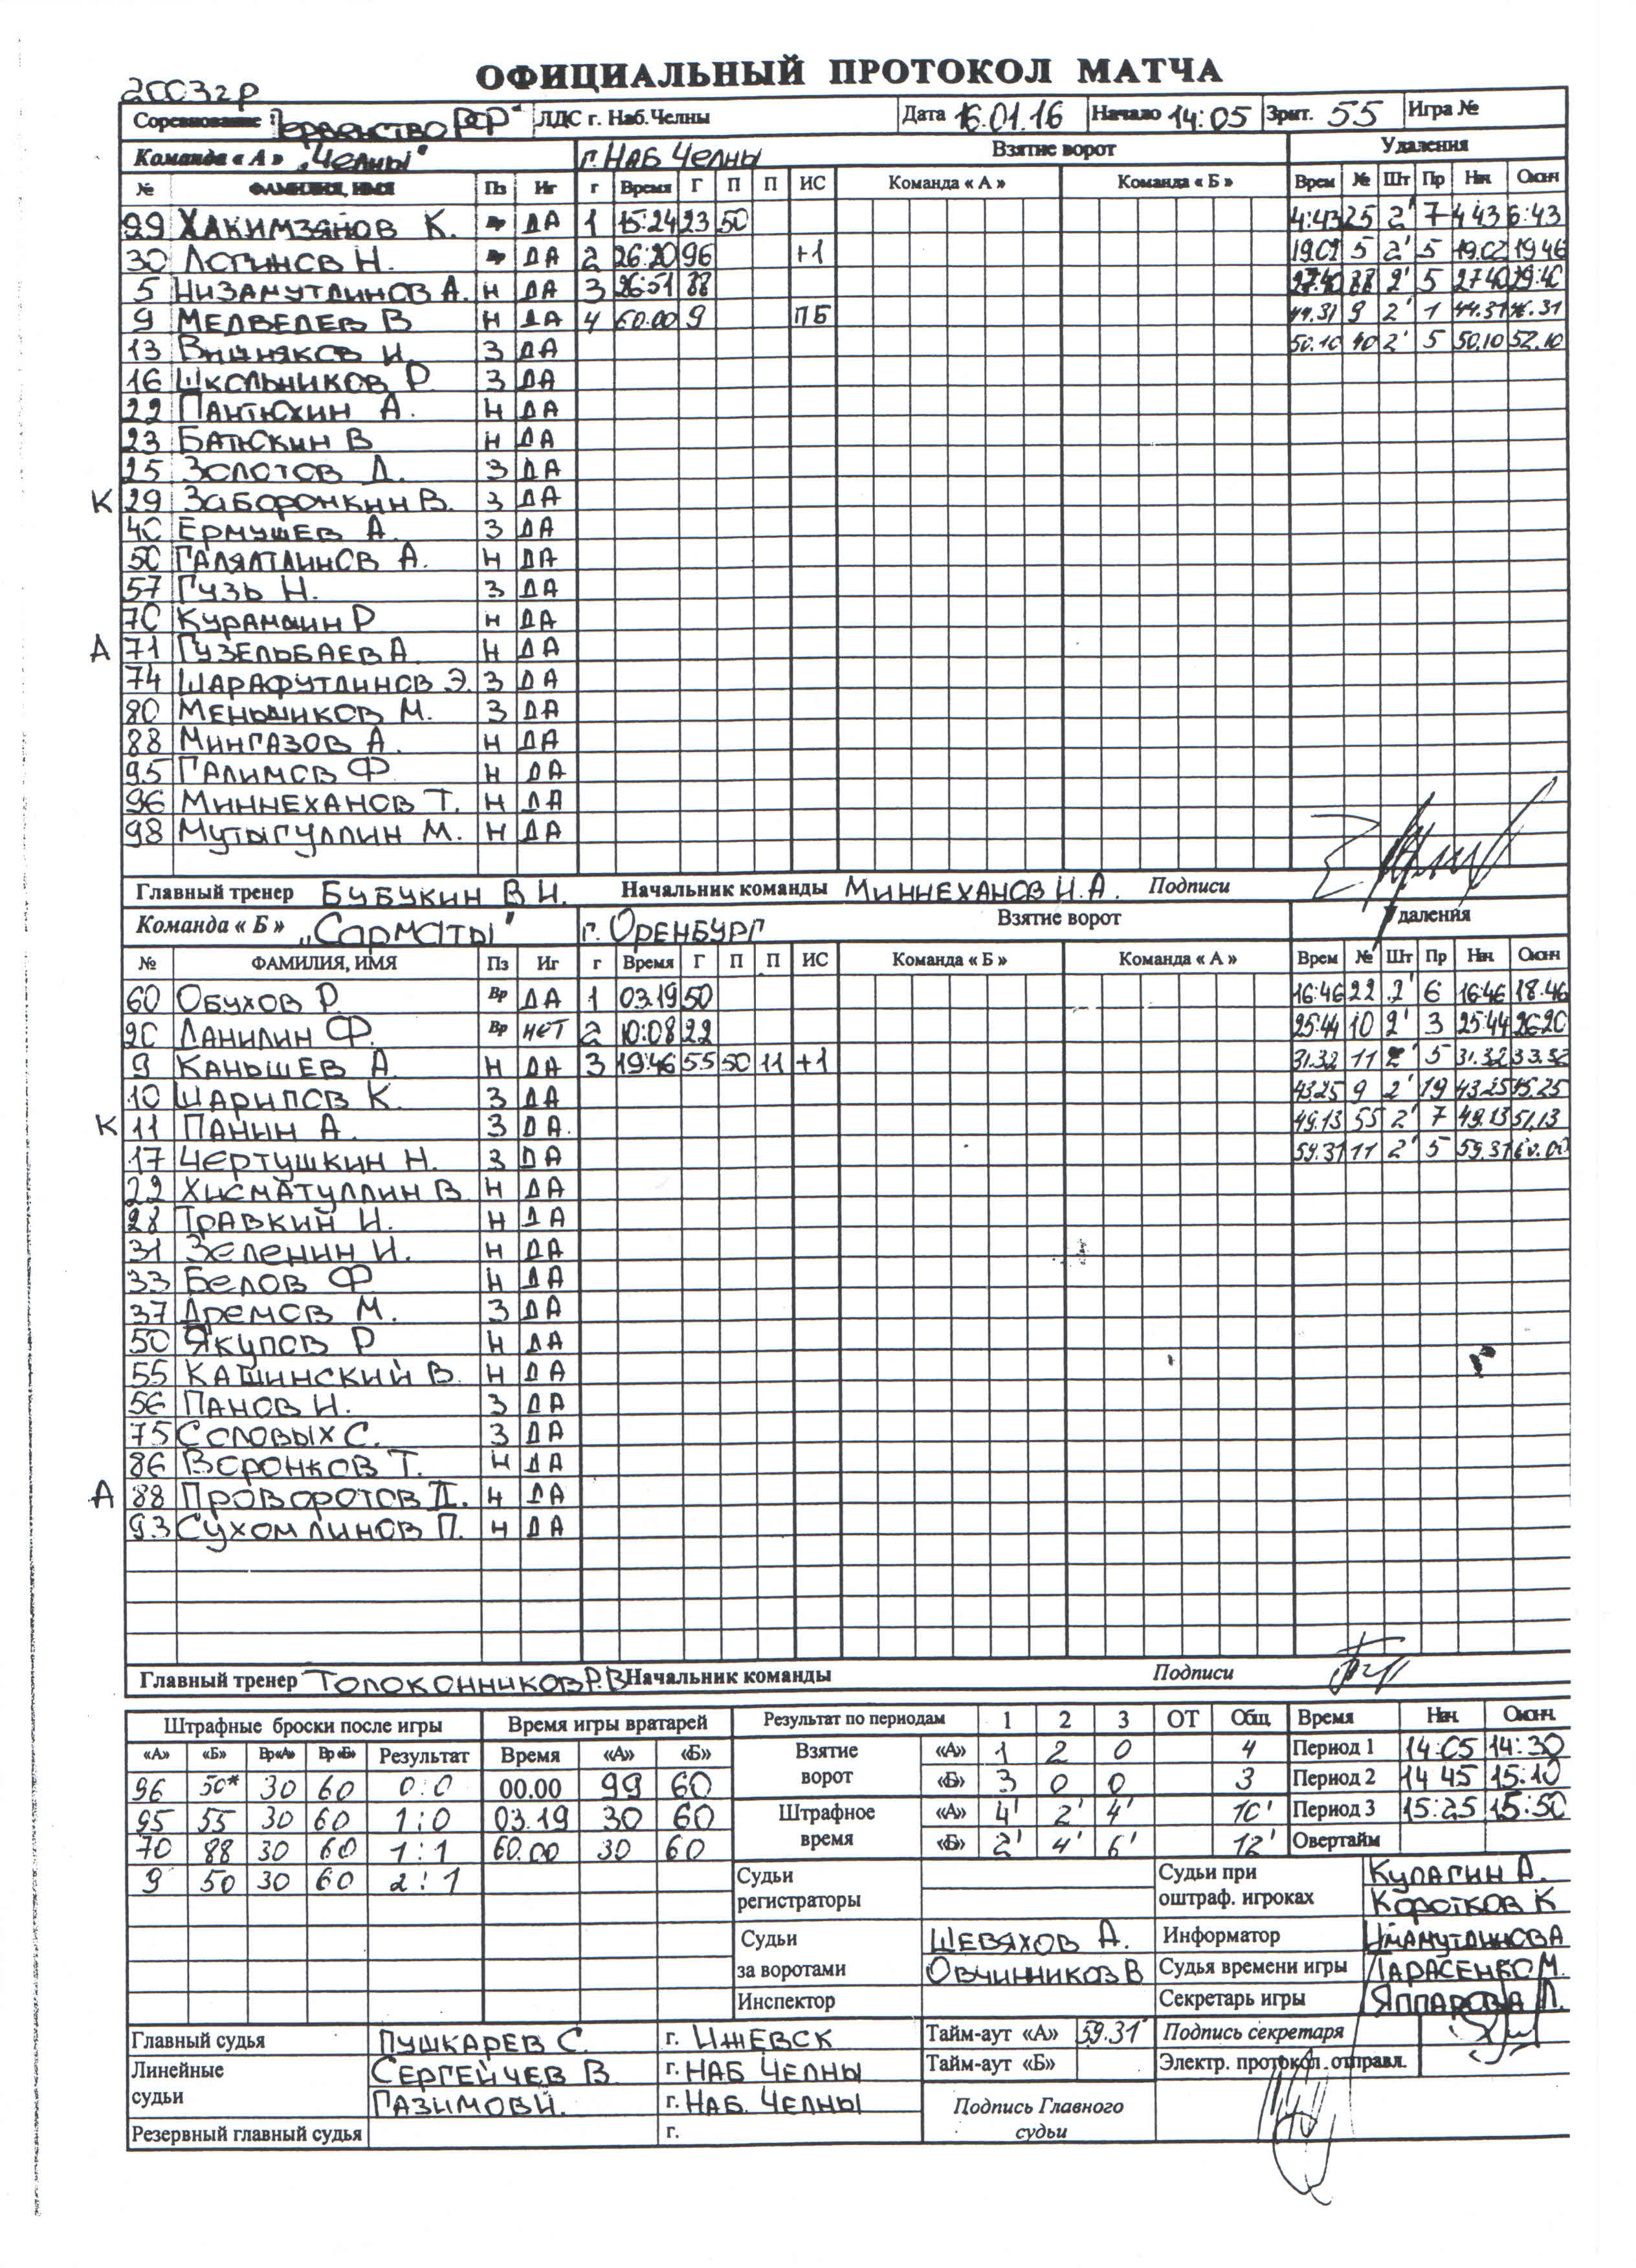 ОФИЦИАЛЬНЫЙ ПРОТОКОЛ МАТЧА
2003г р
Соревнование Первенство РСР" ЛДС г. Наб.Челны Дата 16.01.16 Начало 14:05 Зрит. 55 Игра №
Команда « А » „Челны" г. НАБ Челны Взятие ворот Удаления
№ ФАМИЛИЯ, ИМЯ Пз Иг г Время Г П П ИС Команда « А » Команда « Б » Врем № Шт Пр Нач Оконч
99 ХАКИМЗЯНОВ К. Вр ДА 1 15:24 23 50 4:43 25 2' 7 4 43 6:43
30 ЛОГИНОВ Н. Вр ДА 2 26:20 96 +1 19.02 5 2' 5 19.02 19 46
5 НИЗАМУТДИНОВ А. Н ДА 3 26:51 88 27:40 88 2' 5 27 40 29:40
9 МЕДВЕДЕВ В Н ДА 4 60.00 9 ПБ 44.31 9 2' 1 44.31 46.31
13 ВИШНЯКОВ И. З ДА 50.10 40 2' 5 50.10 52.10
16 ШКОЛЬНИКОВ Р. З ДА
22 ПАНТЮХИН А. Н ДА
23 БАТЮСКИН В Н ДА
25 ЗОЛОТОВ Д. З ДА
К 29 ЗАБОРОНКИН В. З ДА
40 ЕРМУШЕВ А. З ДА
50 ГАЛЯЛТДИНОВ А. Н ДА
57 ГУЗЬ Н. З ДА
70 КУРАМШИН Р Н ДА
А 71 ГУЗЕЛЬБАЕВ А Н ДА
74 ШАРАФУТДИНОВ Э. З ДА
80 МЕНЬШИКОВ М. З ДА
88 МИНГАЗОВ А. Н ДА
95 ГАЛИМОВ Ф Н ДА
96 МИННЕХАНОВ Т. Н ДА
98 МУТЫГУЛЛИН М. Н ДА
Главный тренер БУБУКИН В Н. Начальник команды МИННЕХАНОВ Н.А. Подписи
Команда « Б » „Сарматы" г. ОРЕНБУРГ Взятие ворот Удаления
№ ФАМИЛИЯ, ИМЯ Пз Иг г Время Г П П ИС Команда « Б » Команда « А » Врем № Шт Пр Нач Оконч
60 ОБУХОВ Р. Вр ДА 1 03.19 50 16:46 22 2' 6 16:46 18:46
20 ДАНИЛИН Ф. Вр НЕТ 2 10:08 22 25:44 10 2' 3 25:44 26:20
9 КАНЫШЕВ А. Н ДА 3 19:46 55 50 11 +1 31.32 11 2' 5 31.32 33.32
10 ШАРИПОВ К. З ДА 43.25 9 2' 19 43.25 45.25
К 11 ПАНИН А. З ДА. 49.13 55 2' 7 49.13 51.13
17 ЧЕРТУШКИН Н. З ДА 59.31 11 2' 5 59.31 60.00
22 ХИСМАТУЛЛИН В. Н ДА
28 ТРАВКИН И. Н ДА
31 ЗЕЛЕНИН И. Н ДА
33 БЕЛОВ Ф Н ДА
37 ДРЕМОВ М. З ДА
50 ЯКУПОВ Р Н ДА
55 КАШИНСКИЙ В. Н ДА
56 ПАНОВ Н. З ДА
75 СОЛОВЫХ С. З ДА
86 ВОРОНКОВ Т. Н ДА
А 88 ПРОВОРОТОВ Д. Н ДА
93 СУХОМЛИНОВ П. Н ДА
Главный тренер ТОЛОКОННИКОВ Р.В Начальник команды Подписи
Штрафные броски после игры Время игры вратарей Результат по периодам 1 2 3 ОТ Общ Время Нач Оконч.
«А» «Б» Вр«А» Вр «Б» Результат Время «А» «Б» Взятие ворот «А» 1 2 0 4 Период 1 14:05 14:30
96 50* 30 60 0:0 00.00 99 60 «Б» 3 0 0 3 Период 2 14 45 15:10
95 55 30 60 1:0 03.19 30 60 Штрафное время «А» 4' 2' 4' 10' Период 3 15:25 15:50
70 88 30 60 1:1 60.00 30 60 «Б» 2' 4' 6' 12' Овертайм
9 50 30 60 2:1 Судьи регистраторы Судьи при оштраф. игроках КУЛАГИН А.
КОРОТКОВ К
Судьи за воротами ШЕВЯХОВ А. Информатор ИМАМУТДИНОВА
ОВЧИННИКОВ В Судья времени игры ТАРАСЕНКО М.
Инспектор Секретарь игры ЯППАРОВА Л.
Главный судья ПУШКАРЕВ С. г. ИЖЕВСК Тайм-аут «А» 59.31 Подпись секретаря
Линейные судьи СЕРГЕЙЧЕВ В г. НАБ ЧЕЛНЫ Тайм-аут «Б» Электр. протокол. отправл.
ГАЗИМОВ И. г. НАБ. ЧЕЛНЫ Подпись Главного судьи
Резервный главный судья г.